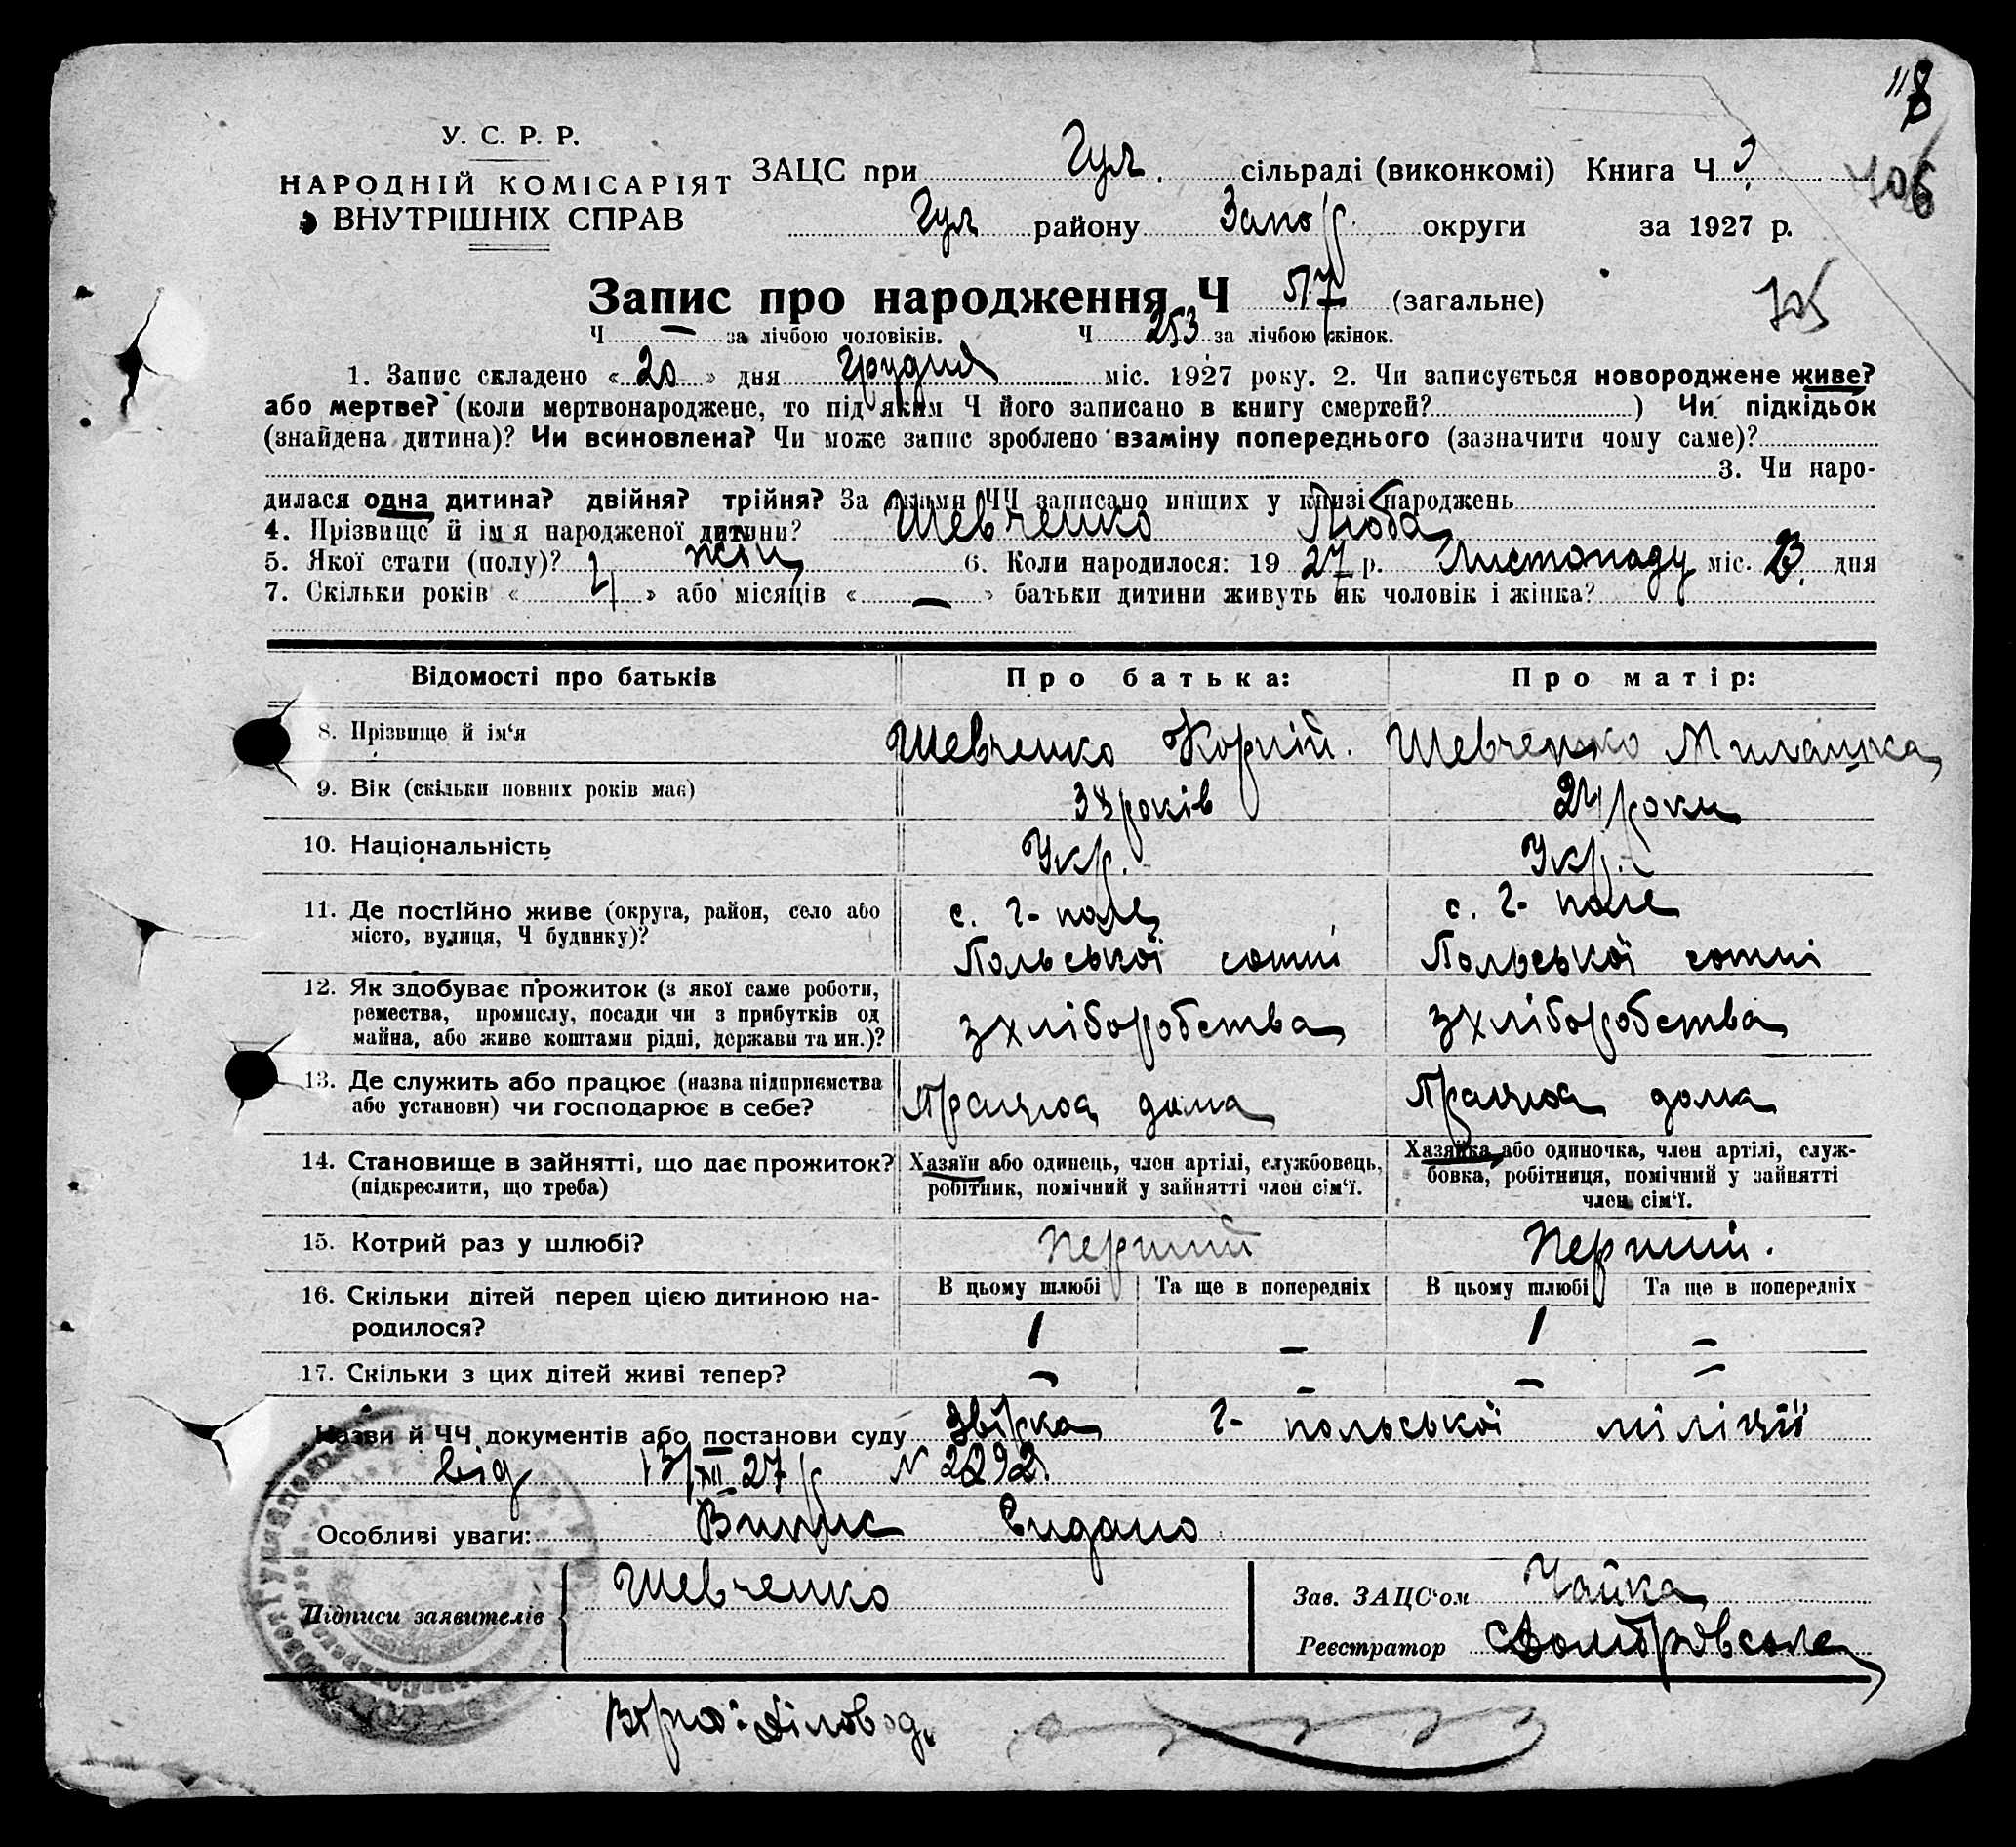 118
У. С. Р. Р.
НАРОДНІЙ КОМІСАРІЯТ
ВНУТРІШНІХ СПРАВ
ЗАЦС при Гул. сільраді (виконкомі) Книга Ч
706
Гул району Запор. округи за 1927 р.
Запис про народження Ч 517 (загальне)
705
Ч — за лічбою чоловіків. Ч 253 за лічбою жінок.
1. Запис складено «20» дня Грудня міс. 1927 року. 2. Чи записується новороджене живе?
або мертве? (коли мертвонароджене, то під яким Ч його записано в книгу смертей? ) Чи підкідьок
(знайдена дитина)? Чи всиновлена? Чи може запис зроблено взаміну попереднього (зазначити чому саме)?
3. Чи наро-
дилася одна дитина? двійня? трійня? За якими ЧЧ записано инших у книзі народжень
4. Прізвище й ім'я народженої дитини? Шевченко Люба
5. Якої стати (полу)? жін, 6. Коли народилося: 19 27 р. Листопаду міс. 23. дня
7. Скільки років «4» або місяців «—» батьки дитини живуть як чоловік і жінка?
Відомості про батьків Про батька: Про матір:
8. Прізвище й ім'я Шевченко Корній. Шевченко Милашка
9. Вік (скільки повних років має) 38 років 24 роки
10. Національність Укр. Укр.
11. Де постійно живе (округа, район, село або с. Г-поле с. Г-поле
місто, вулиця, Ч будинку)? Польської сотні Польської сотні
12. Як здобуває прожиток (з якої саме роботи,
ремества, промислу, посади чи з прибутків од
майна, або живе коштами рідні, держави та ин.)? з хліборобства з хліборобства
13. Де служить або працює (назва підприємства
або установи) чи господарює в себе? Працюа дома Працюа дома
14. Становище в зайнятті, що дає прожиток? Хазяїн або одинець, член артілі, службовець, Хазяйка або одиночка, член артілі, служ-
(підкреслити, що треба) робітник, помічний у зайнятті член сім'ї. бовка, робітниця, помічний у зайнятті
член сім'ї.
15. Котрий раз у шлюбі? Перший Перший.
16. Скільки дітей перед цією дитиною на- В цьому шлюбі Та ще в попередніх В цьому шлюбі Та ще в попередніх
родилося? 1 — 1 —
17. Скільки з цих дітей живі тепер? — — — —
Назви й ЧЧ документів або постанови суду Звірка Г-польської міліції
від 13/XII 27 р N 2292.
Особливі уваги: Випис Видано
Підписи заявителів Шевченко
Зав. ЗАЦС'ом Чайка
Реєстратор
Вірно: Діловод.